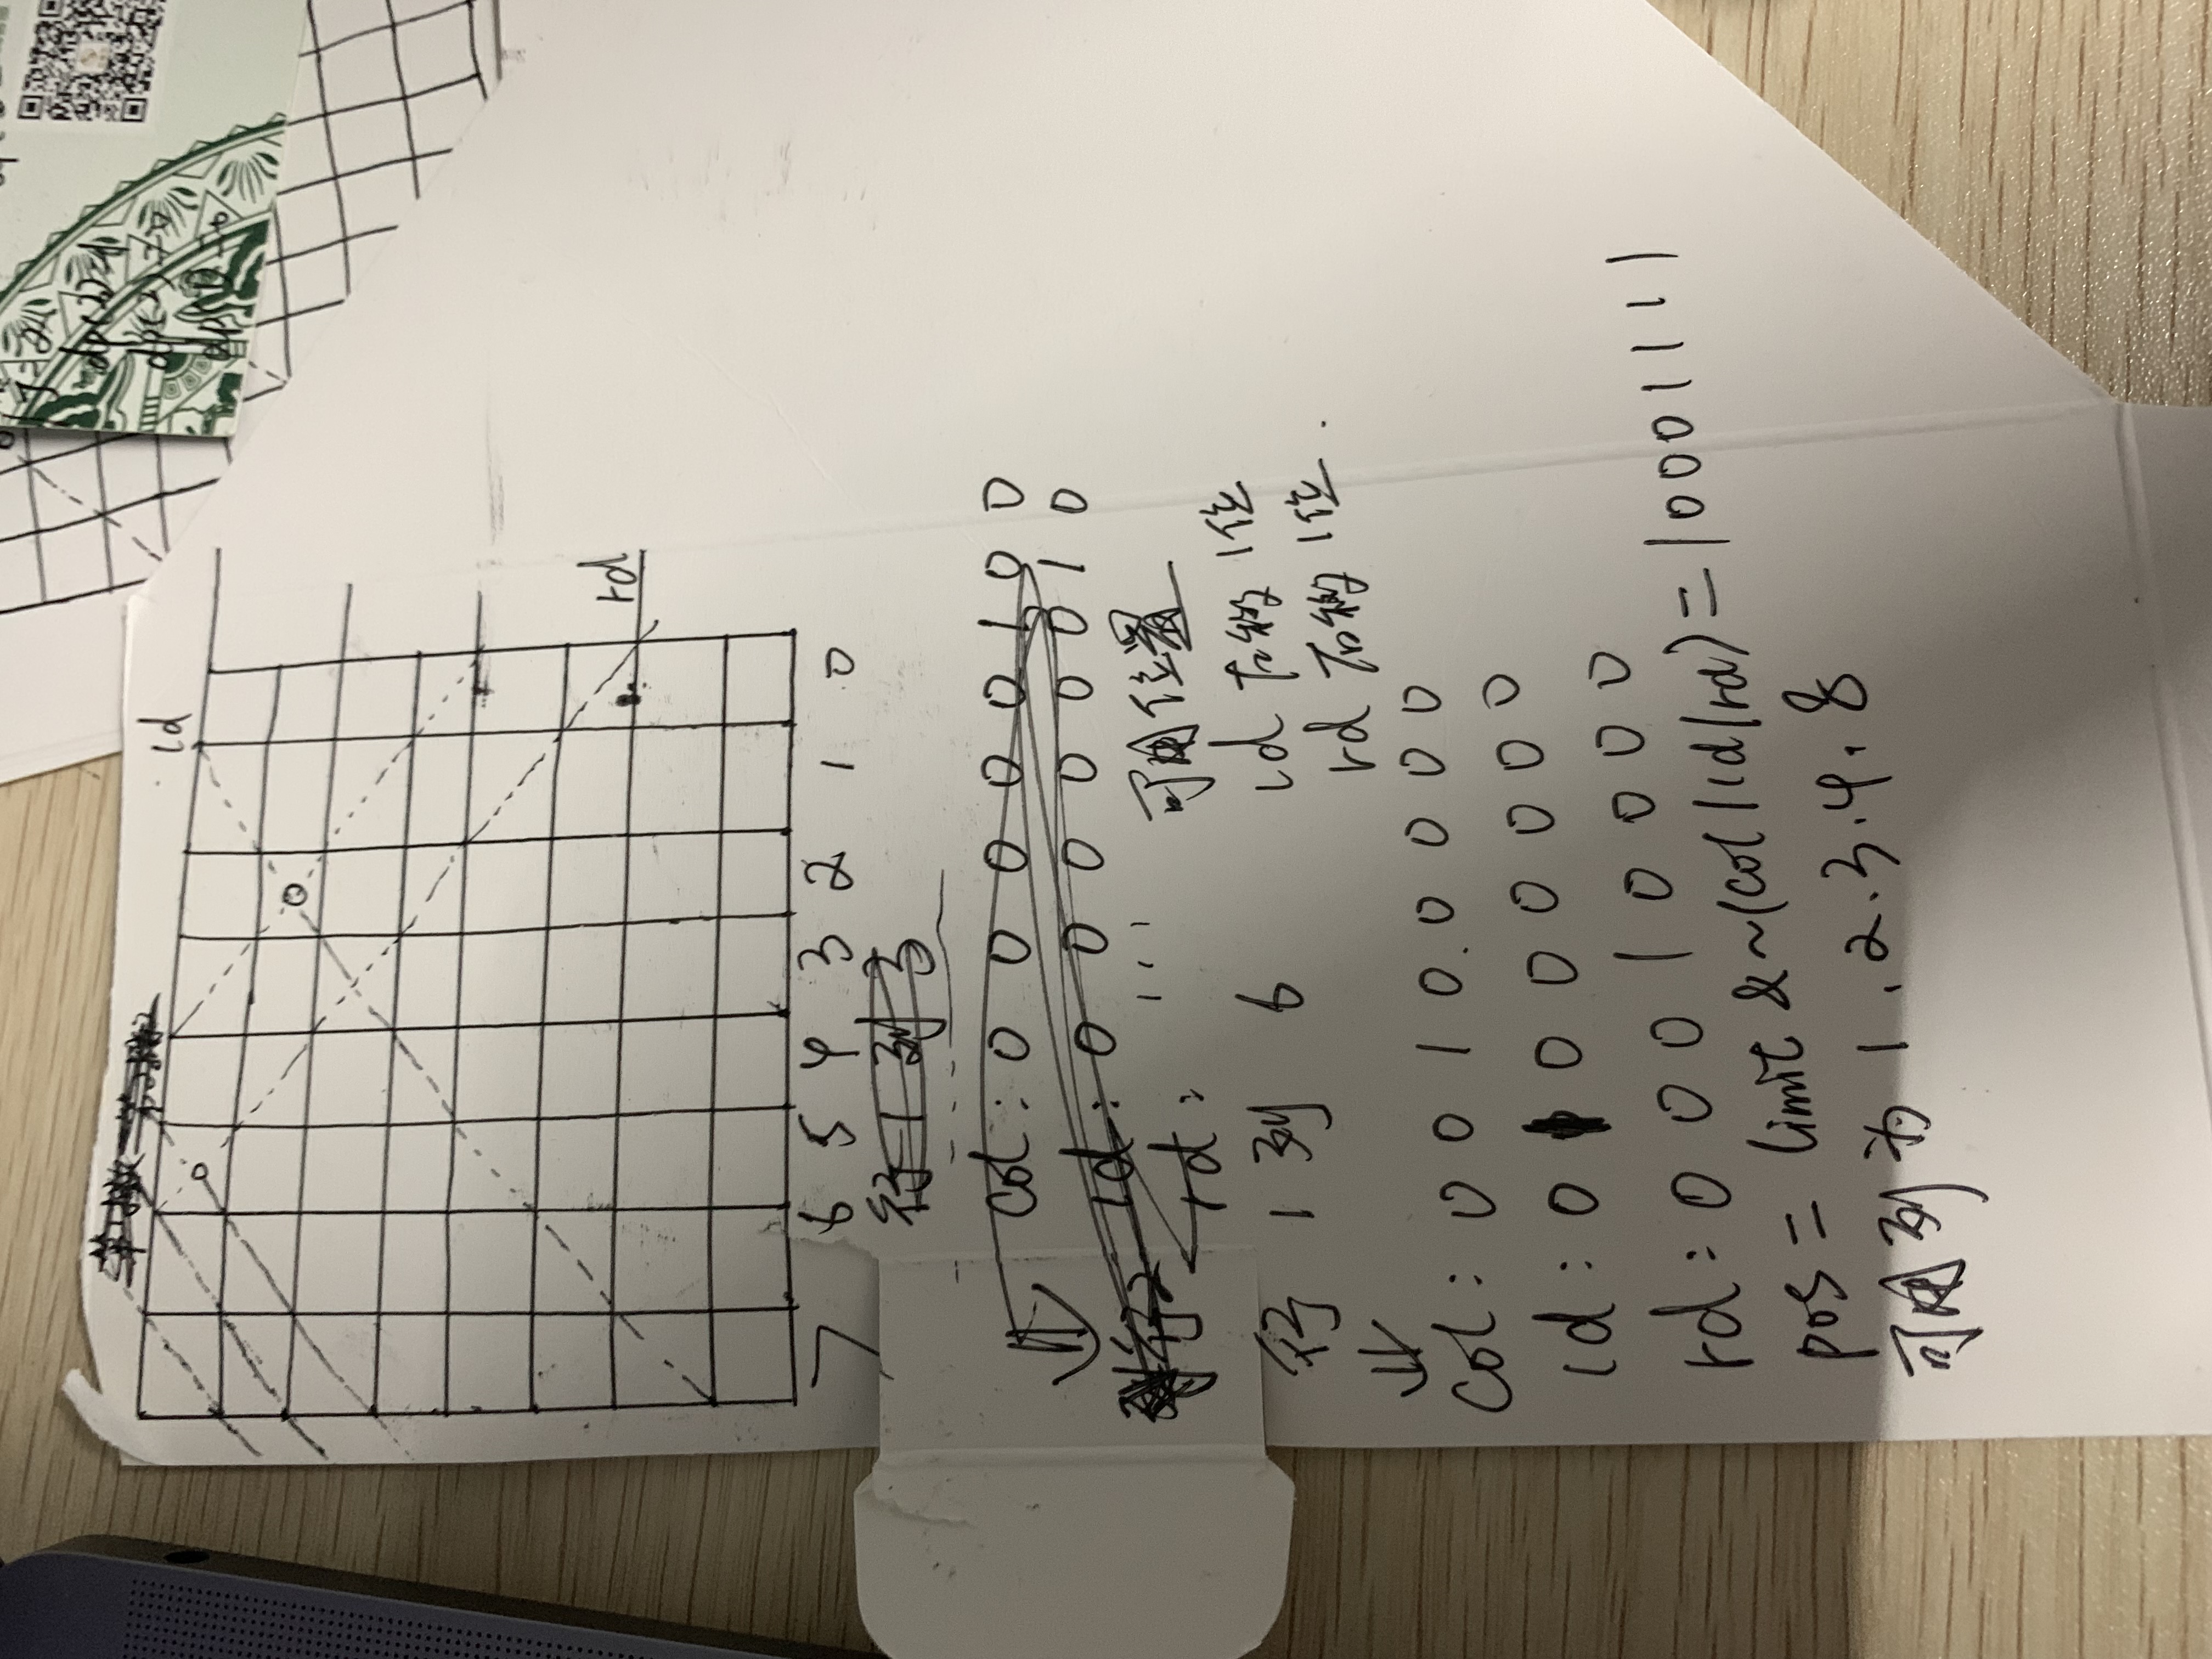 dp(3)=1
dp(2)=0
dp(1)=0
ld
rd
7 6 5 4 3 2 1 0
行 1 列 3
col: 0 0 0 0 0 1 0 0
ld: 0 0 0 0 0 0 1 0
rd: ...
可用位置
ld 左移 1位
rd 右移 1位.
行 1 列 6
col: 0 0 1 0 0 0 0 0
ld: 0 1 0 0 0 0 0 0
rd: 0 0 0 1 0 0 0 0
pos = limit & ~(col | ld | rd) = 10001111
可用列为 1.2.3.4.8